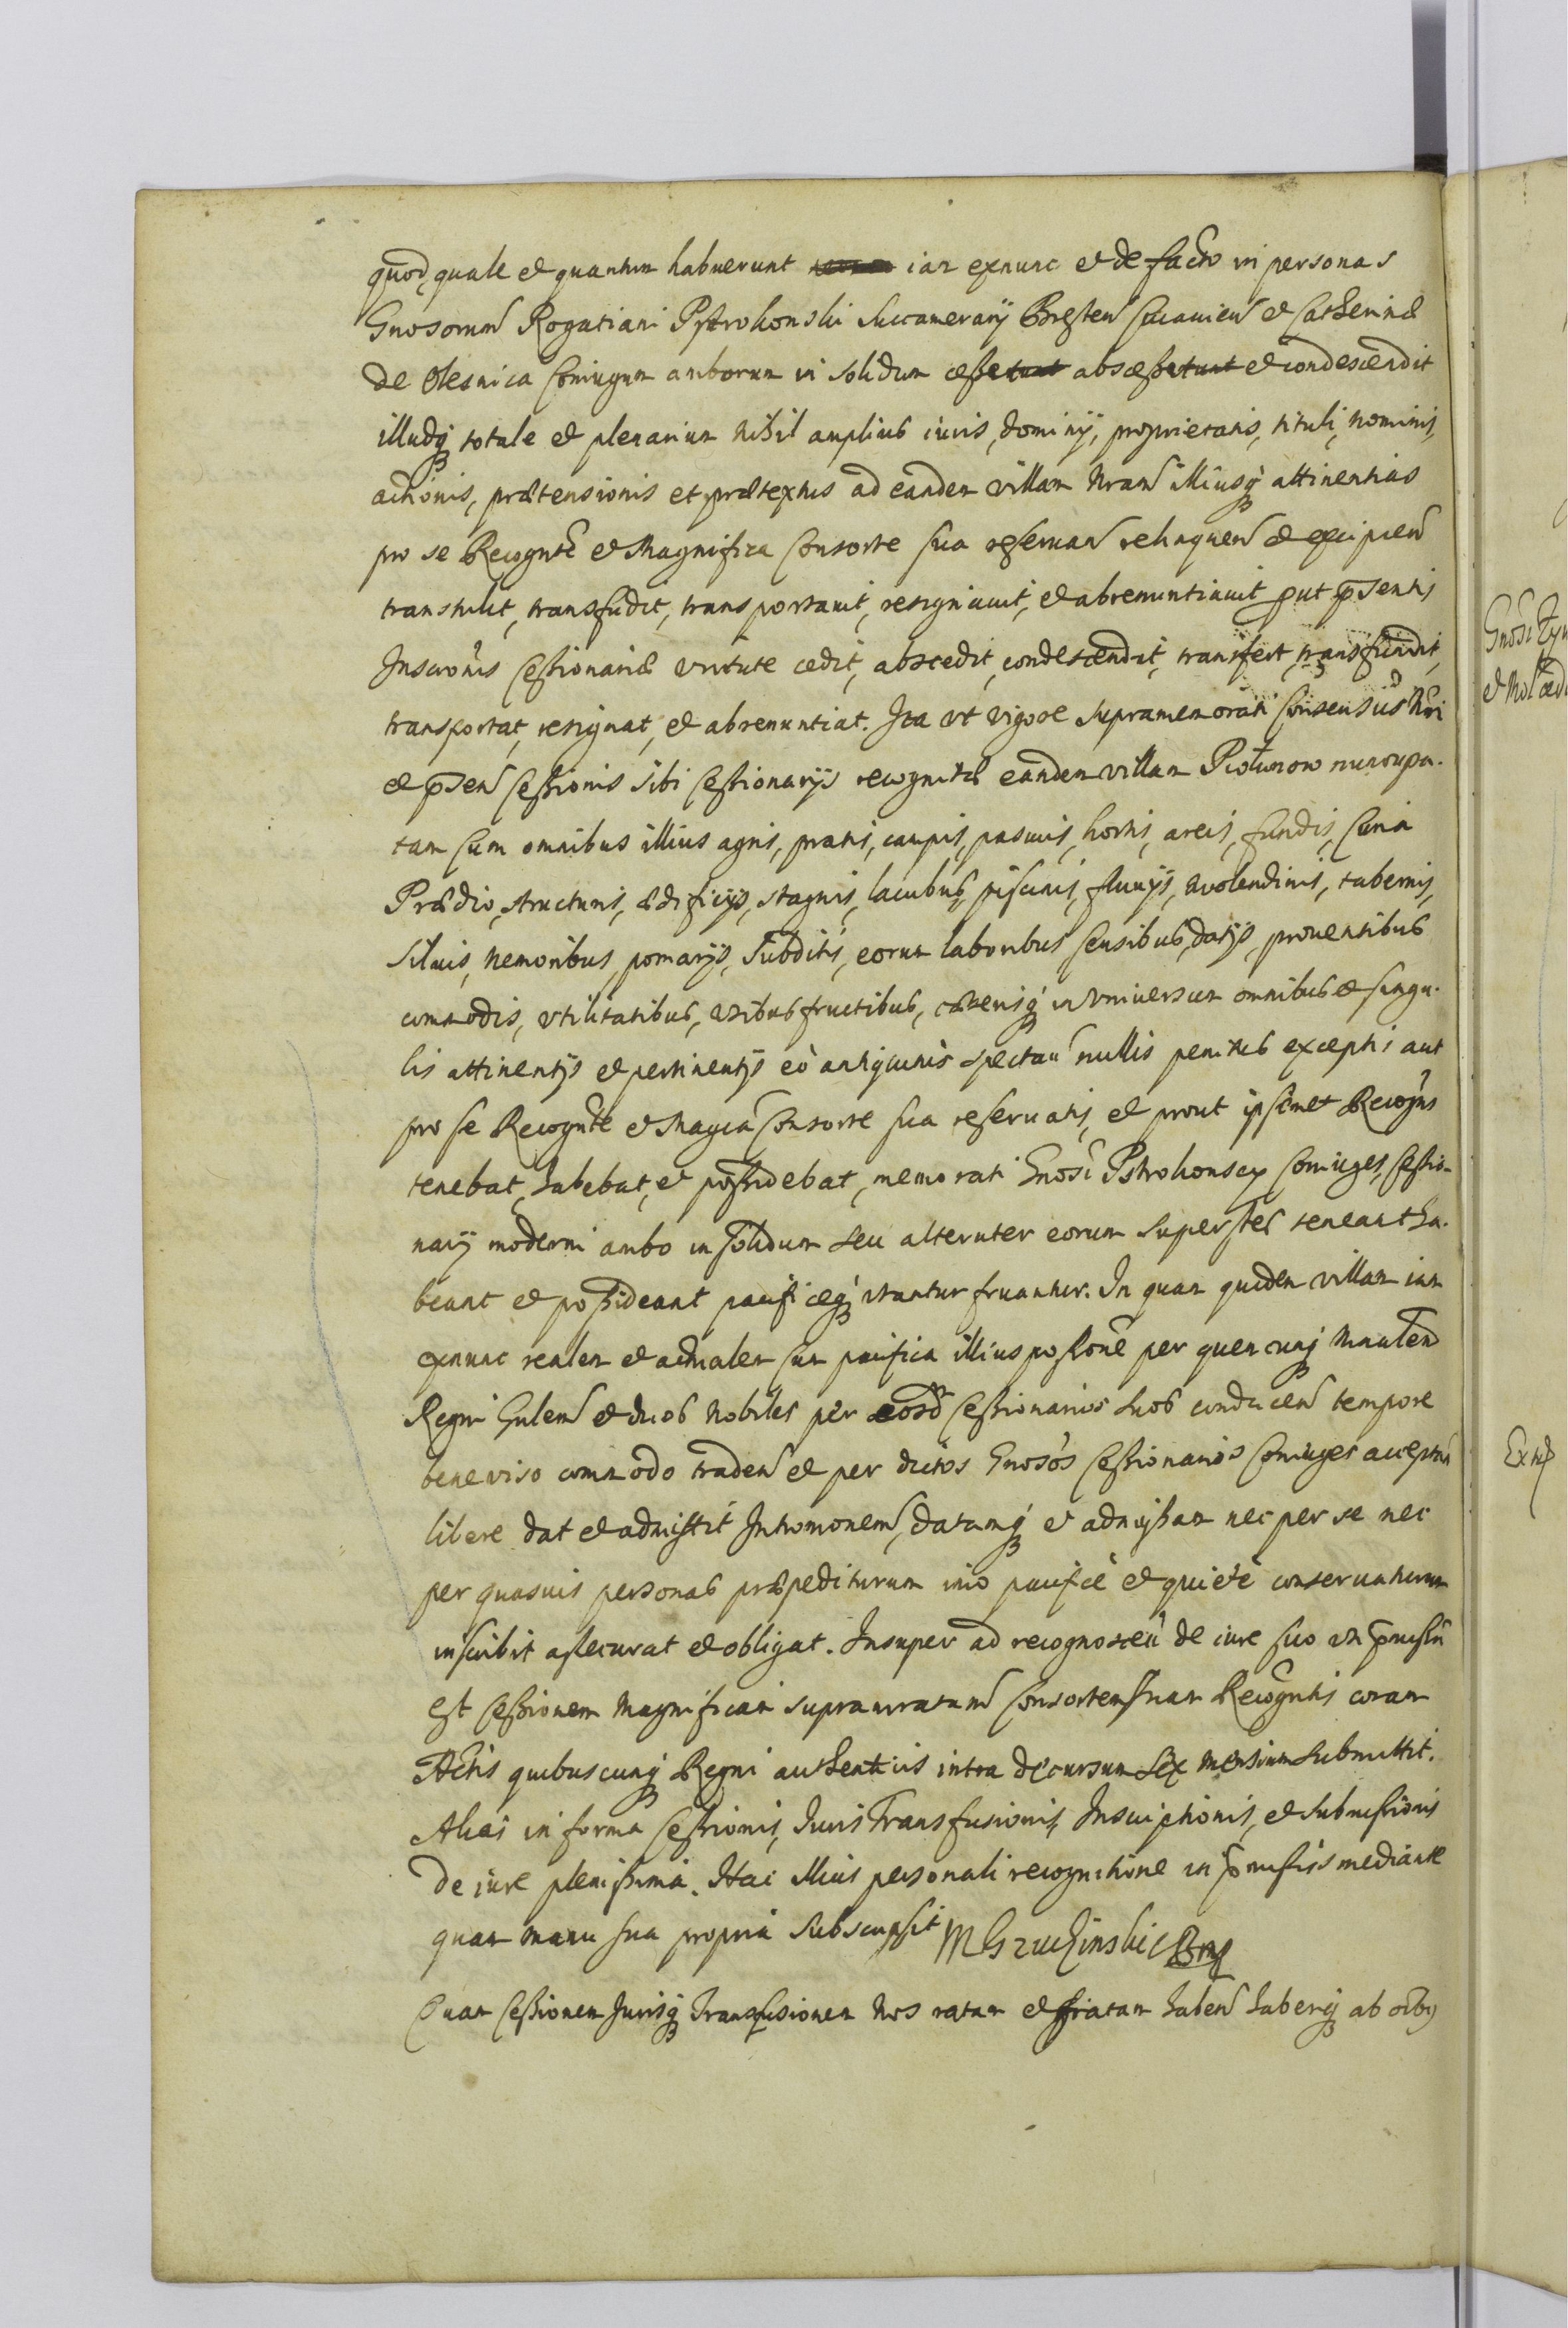 quod, quale et quantum habuerunt iam exnunc et de facto in personas
Gnosorum Rogatiani Pstrokonski Succamerarij Bresten Cuiauien et Catherinæ
de Olesnica Coniugum amborum in solidum cessetunt abscessetunt et condescendit
illudq totale et plenarium nihil amplius iuris, dominij, proprietatis, tituli, nominis,
actionis, prætensionis et prætextus ad eandem villam Nram illiusq attinentias
pro se Recognte et Magnifica Consorte sua reseruan relinquen et excipien
transtulit, transfudit, transportauit, resignauit, et abrenuntiauit put psentis
Inscronis Cessionariæ virtute cedit, abscedit, condescendit, transfert, transfundit,
transportat, resignat, et abrenuntiat. Ita vt vigore supramemorati Consensus Nri
et psen Cessionis sibi Cessionarijs recognitæ eandem villam Piotunowo nuncupa-
tam cum omnibus illius agris, pratis, campis, pascuis, hortis, areis, fundis, Curia
Prædio, structuris, ædificijs, stagnis, lacubus, piscinis, fluuijs, molendinis, tabernis,
siluis, nemoribus, pomarijs, Subditis, eorum laboribus censibus, datijs, prouentibus
commodis, vtilitatibus, vsibusfructibus, cæterisq in vniuersum omnibus et singu-
lis attinentijs et pertinentijs eò antiquitùs spectan nullis penitus exceptis aut
pro se Recognte et Magca Consorte sua reseruatis, et prout ipsemet Recogns
tenebat, habebat, et possidebat, memorati Gnosi Pstrokonscy Coniuges, Cessio-
narij moderni ambo in solidum seu alteruter eorum superstes teneant ha-
beant et possideant pacificeq vtantur fruantur. In quam quidem villam iam
exnunc realem et actualem cum pacifica illius possone per quemcunq Mnalem
Regni Gnlem et duos Nobiles per eosd Cessionarios suos conducen tempore
bene viso commodo traden et per dictos Gnosos Cessionarios Coniuges acceptan
libere dat et admittit Intromonem, datamq et admissam nec per se nec
per quasuis personas præpediturum imo pacificè et quietè conseruaturum
inscribit assecurat et obligat. Insuper ad recognoscen de iure suo vn pmissu
est Cessionem Magnificam supranrratam Consortem suam Recogntis coram
Actis quibuscunq Regni authenticis intra decursum sex mensium submittit.
Alias in forma Cessionis, Iuris Transfusionis, Inscriptionis, et submissionis
de iure plenissima. Hac illius personali recognitione in pmissis mediante
quam manu sua propria subscripsit M Gruzinski C B mp
Quam Cessionem Jurisq Transfusionem Nos ratam et gratam haben haberiq ab oibus
Gnosi
et Nob
Extr